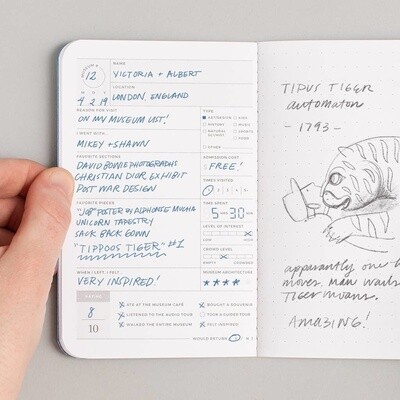 MUSEUM #
12
NAME
VICTORIA + ALBERT
LOCATION
LONDON, ENGLAND
M D Y
4 2 19
REASON FOR VISIT
ON MY MUSEUM LIST!
TYPE
ART/DESIGN
KIDS
HISTORY
MUSIC
NATURAL HISTORY
SPORTS
SCIENCE
FOOD
OTHER:
I WENT WITH...
MIKEY + SHAWN
ADMISSION COST
FREE!
FAVORITE SECTIONS
DAVID BOWIE PHOTOGRAPHS
CHRISTIAN DIOR EXHIBIT
POST WAR DESIGN
TIMES VISITED
1 2 3 4 5+
FAVORITE PIECES
"JOB" POSTER BY ALPHONSE MUCHA
UNICORN TAPESTRY
SACK BACK GOWN
"TIPPOOS TIGER" #1
TIME SPENT
5 HRS 30 MIN
LEVEL OF INTEREST
LOW HIGH
CROWD LEVEL
EMPTY CROWDED
WHEN I LEFT, I FELT...
VERY INSPIRED!
MUSEUM ARCHITECTURE
RATING
8
10
ATE AT THE MUSEUM CAFÉ
BOUGHT A SOUVENIR
LISTENED TO THE AUDIO TOUR
TOOK A GUIDED TOUR
WALKED THE ENTIRE MUSEUM
FELT INSPIRED
WOULD RETURN Y N
TIPUS TIGER
automaton
- 1793 -
apparantly one h
moves, man wails
Tiger moans.
AMAZING!